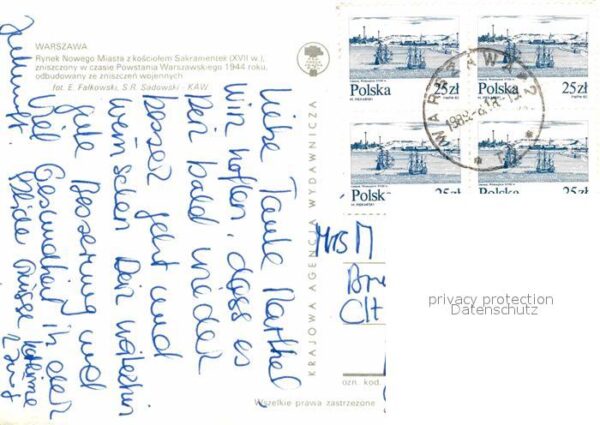 WARSZAWA
Rynek Nowego Miasta z kościołem Sakramentek (XVII w.),
zniszczony w czasie Powstania Warszawskiego 1944 roku,
odbudowany ze zniszczeń wojennych
fot. E. Falkowski, S.R. Sadowski - KAW
Liebe Tante Marthel,
wir hoffen, dass es
Dir bald wieder
besser geht und
wünschen Dir weiterhin
gute Besserung und
viel Gesundheit in der
Zukunft.
KRAJOWA AGENCJA WYDAWNICZA
Polska 25zł
Polska 25zł
Polska 25zł
Polska 25zł
WARSZAWA
Mrs M
Clt
privacy protection
Datenschutz
ozn. kod.
Wszelkie prawa zastrzeżone